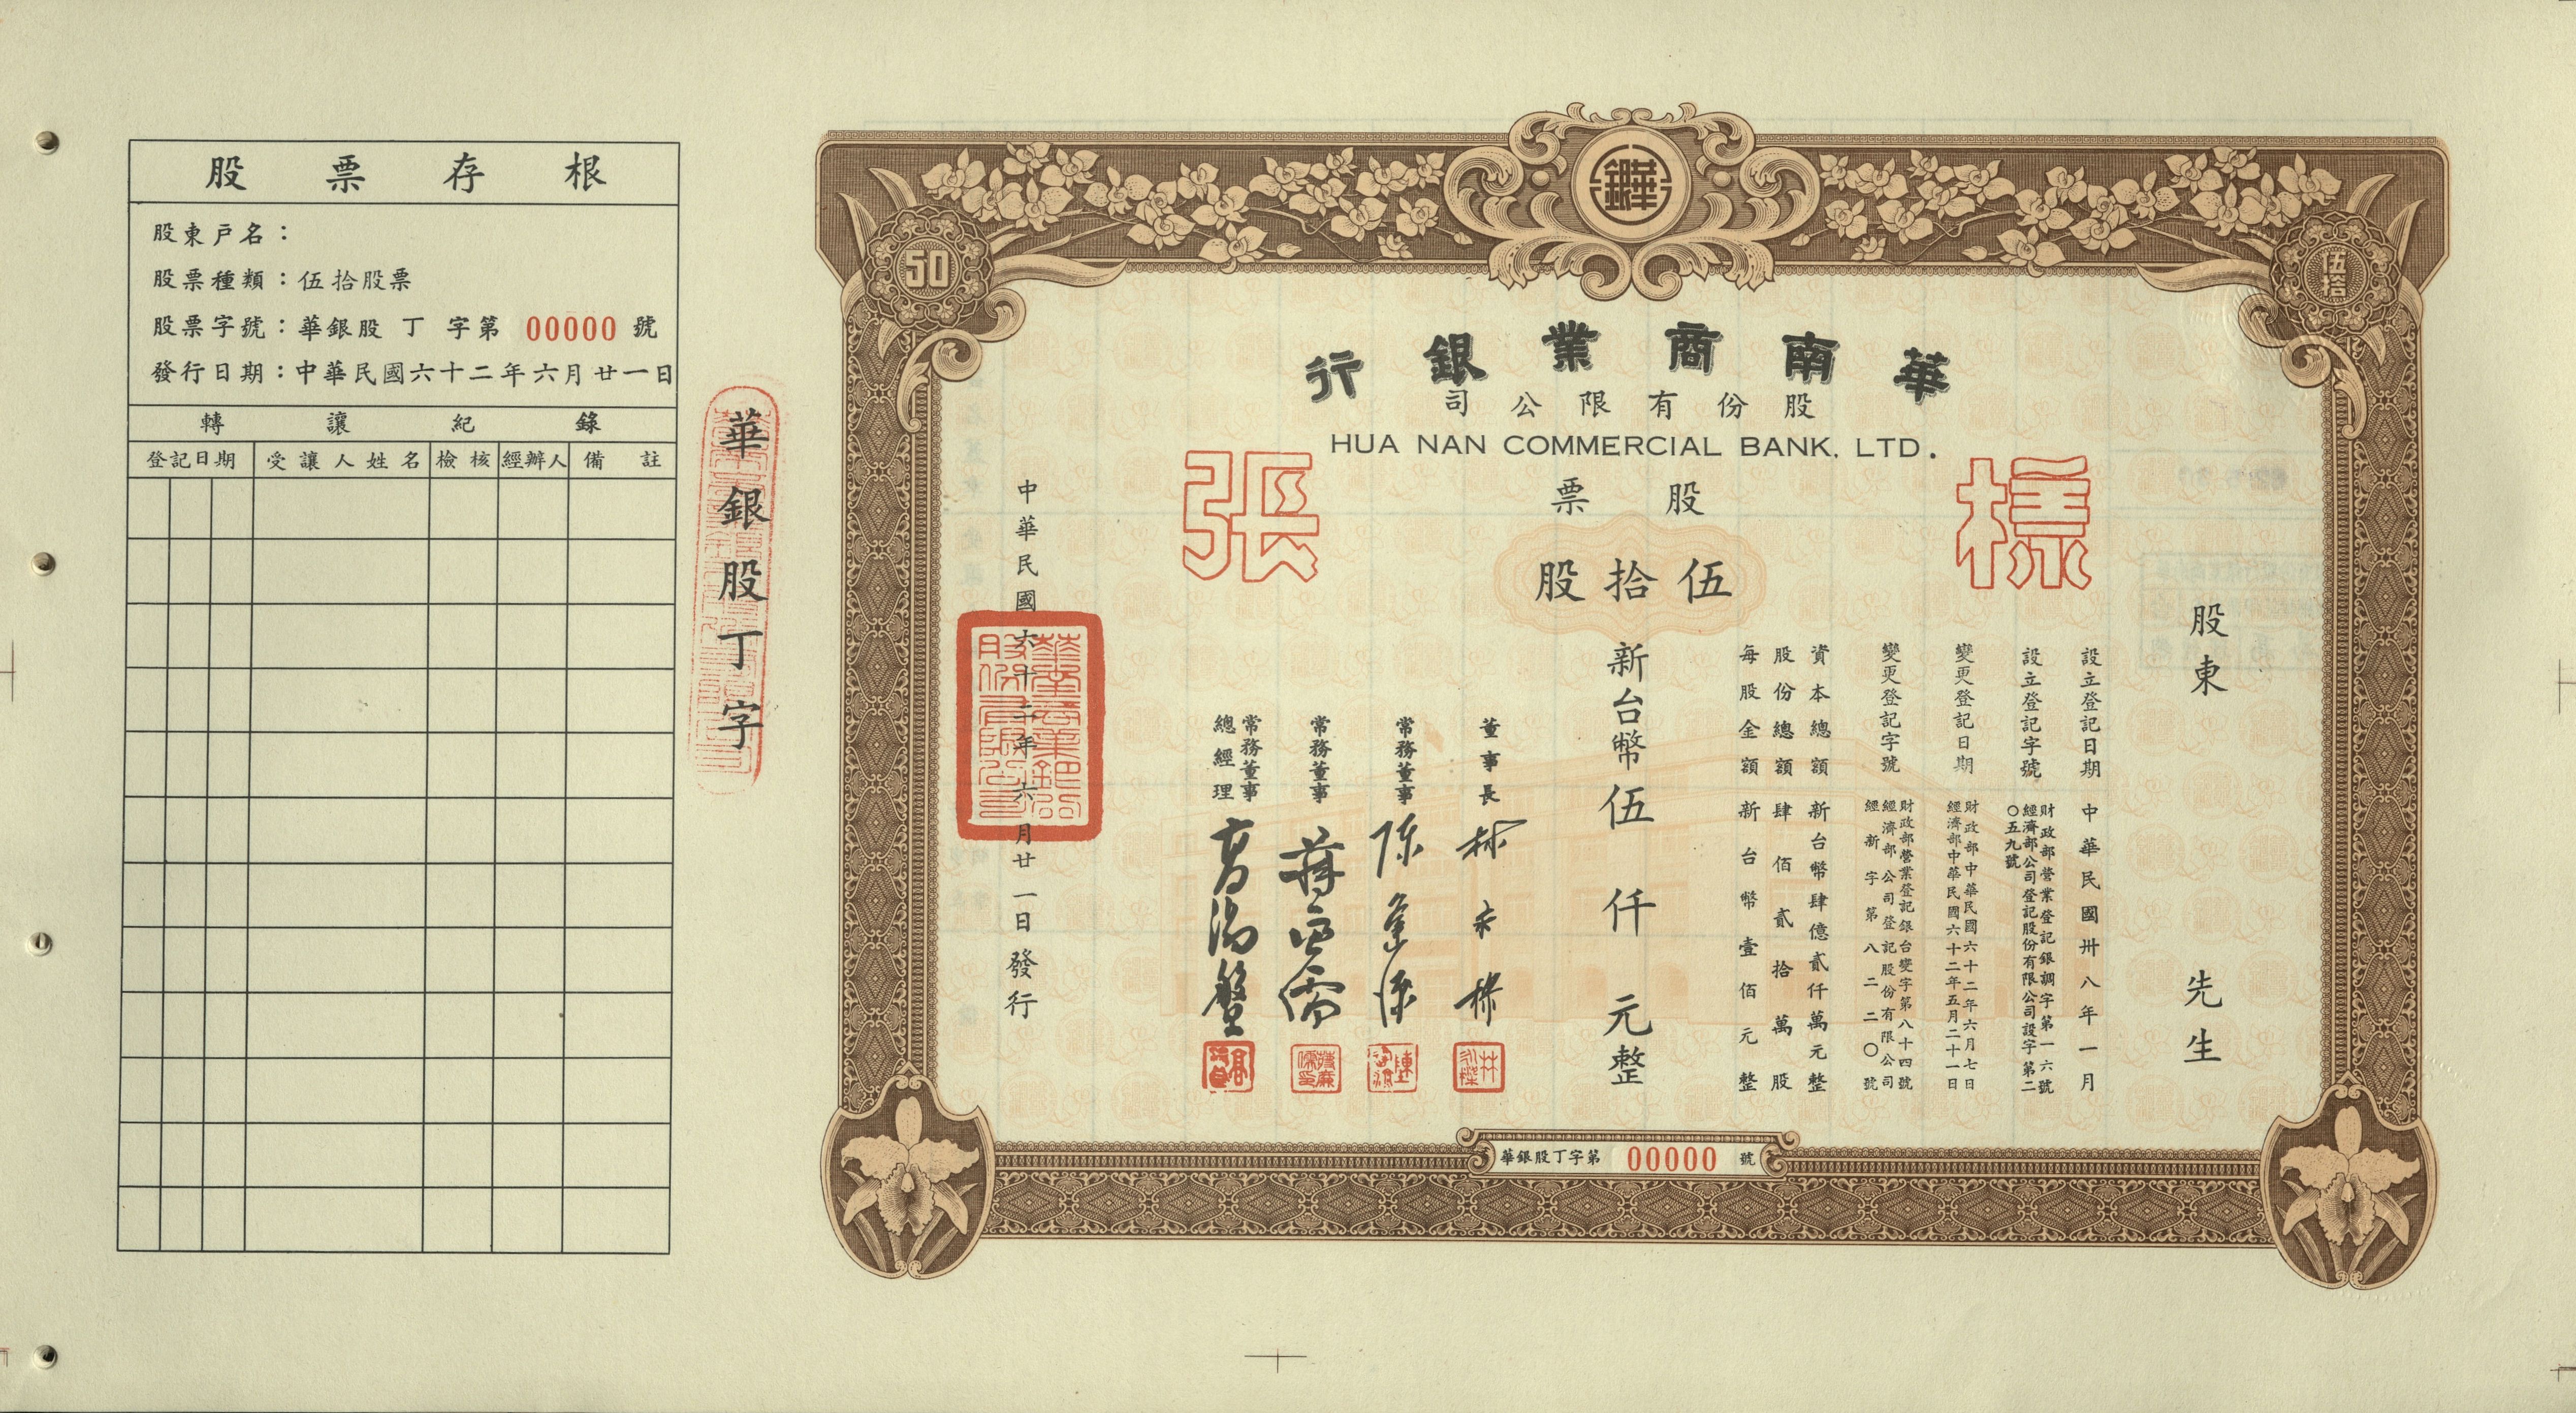 股票存根
股東戶名：
股票種類：伍拾股票
股票字號：華銀股 丁 字第 00000 號
發行日期：中華民國六十二年六月廿一日
轉讓紀錄
登記日期 受讓人姓名 檢核 經辦人 備註
華銀股丁字
50
華銀
伍拾
華南商業銀行
股份有限公司
HUA NAN COMMERCIAL BANK. LTD.
樣張
股票
伍拾股
股東 先生
設立登記日期 中華民國卅八年一月
設立登記字號 財政部營業登記銀調字第一六號
經濟部公司登記股份有限公司設字第二〇五九號
變更登記日期 財政部中華民國六十二年六月七日
經濟部中華民國六十二年五月二十一日
變更登記字號 財政部營業登記銀台變字第八十四號
經濟部公司登記股份有限公司
經新字第八二二〇號
資本總額 新台幣肆億貳仟萬元整
股份總額 肆佰貳拾萬股
每股金額 新台幣壹佰元整
新台幣伍仟元整
董事長
常務董事
常務董事
常務董事
總經理
中華民國六十二年六月廿一日發行
華銀股丁字第 00000 號